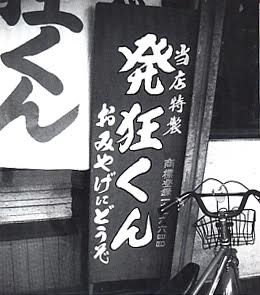 当店特製
発狂くん
おみやげにどうぞ
狂くん